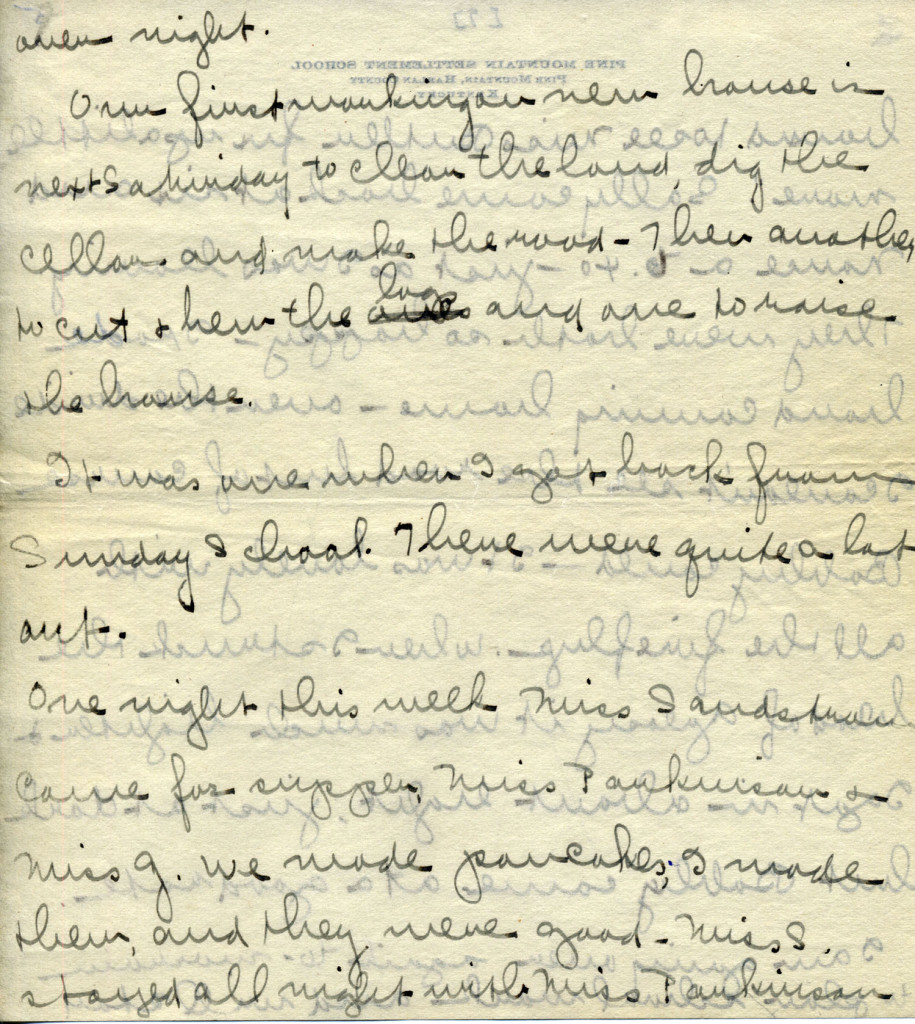 over night.
Our first working on new house is
next Saturday to clear the land, dig the
cellar and make the road - Then another
to cut & hew the logs and one to raise
the house.
It was one when I got back from
Sunday School. There were quite a lot
out.
One night this week Miss Sandstrom
came for supper, Miss Parkinson &
Miss G. We made pancakes; I made
them, and they were good - Miss S.
stayed all night with Miss Parkinson